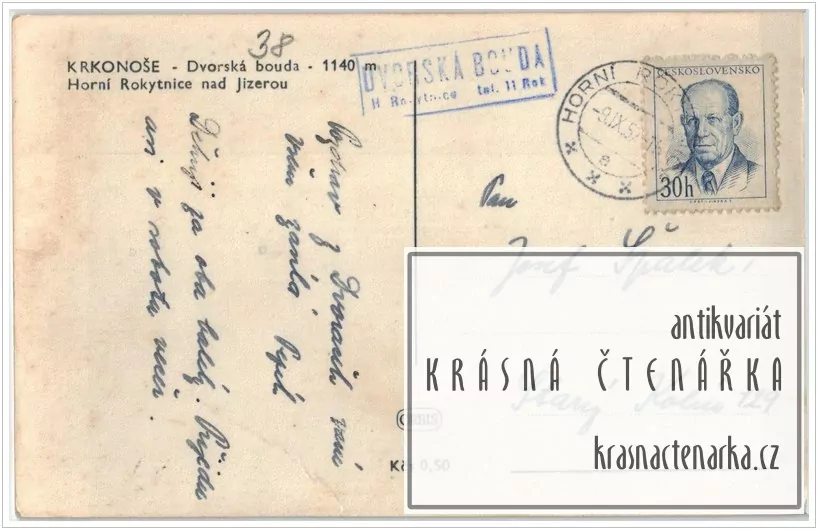 38
KRKONOŠE - Dvorská bouda - 1140 m
Horní Rokytnice nad Jizerou
DVORSKÁ BOUDA
H Rokytnice tel. 11 Rok
HORNÍ ROK
-9.IX.5
a
ČESKOSLOVENSKO
30h
Pozdrav z Dvorach
Vám
Děkuji za oba
v sobotu večer.
Pan
Josef Špaček,
Starý Kolín 129
ORBIS
Kčs 0,50
antikvariát
KRÁSNÁ ČTENÁŘKA
krasnactenarka.cz